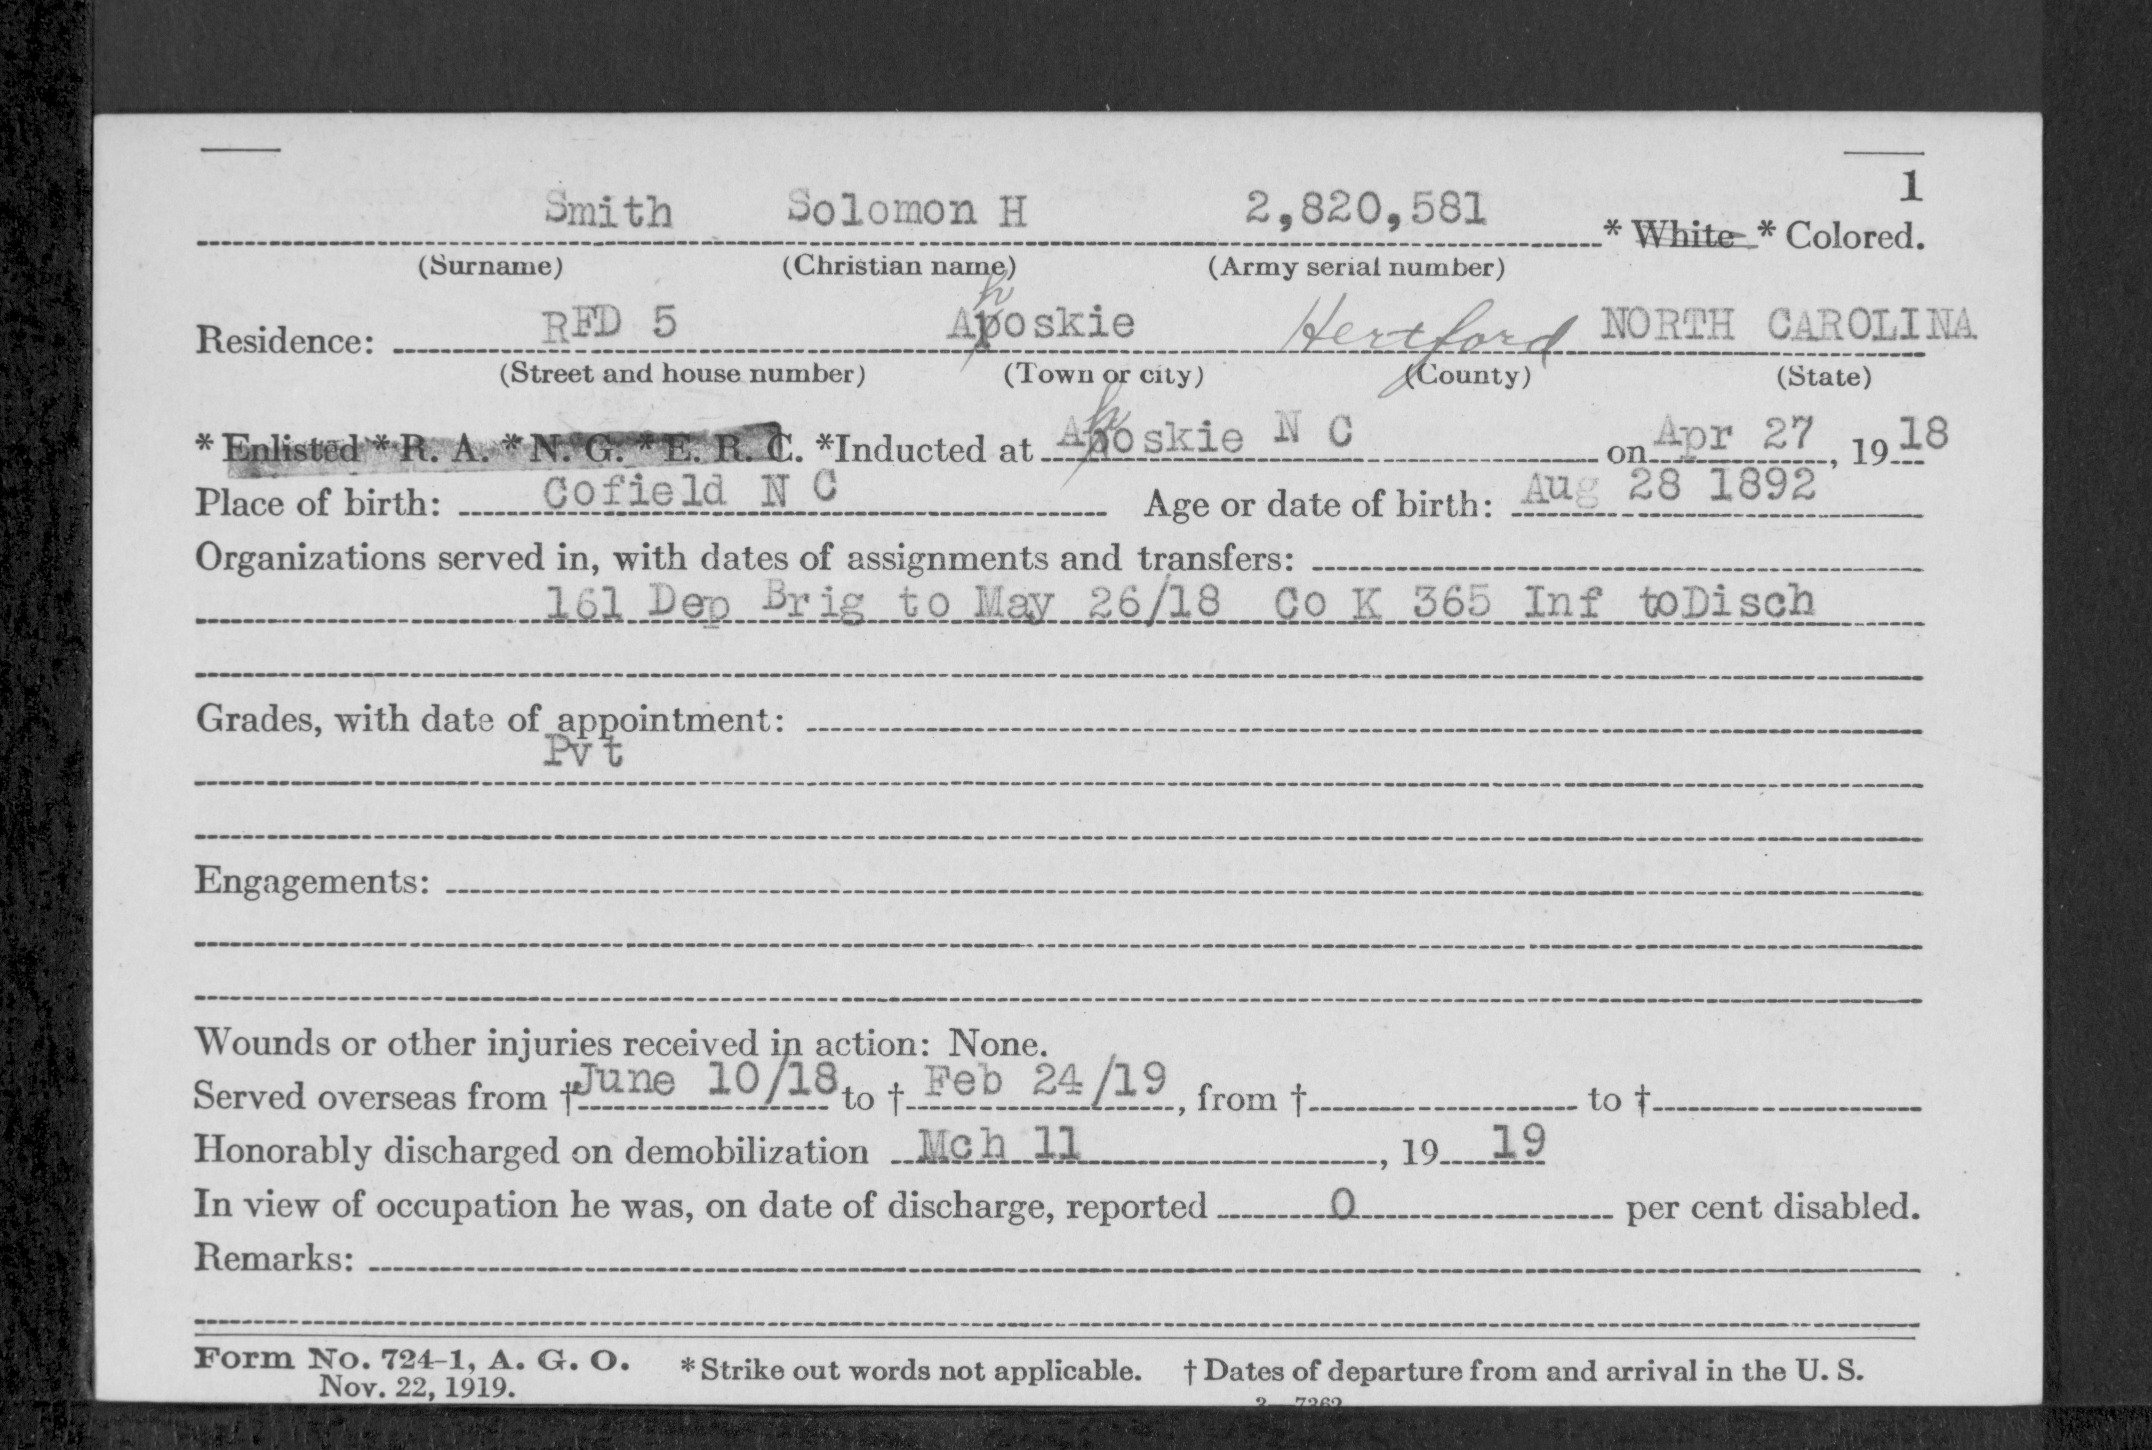 1
Smith Solomon H 2,820,581 * White * Colored.
(Surname) (Christian name) (Army serial number)
Residence: RFD 5 Ahoskie Hertford NORTH CAROLINA
(Street and house number) (Town or city) (County) (State)
* Enlisted * R. A. * N. G. * E. R. C. *Inducted at Ahoskie N C on Apr 27, 1918
Place of birth: Cofield N C Age or date of birth: Aug 28 1892
Organizations served in, with dates of assignments and transfers:
161 Dep Brig to May 26/18 Co K 365 Inf toDisch
Grades, with date of appointment:
Pvt
Engagements:
Wounds or other injuries received in action: None.
Served overseas from † June 10/18 to † Feb 24/19, from † to †
Honorably discharged on demobilization Mch 11, 19 19
In view of occupation he was, on date of discharge, reported 0 per cent disabled.
Remarks:
Form No. 724-1, A. G. O. * Strike out words not applicable. † Dates of departure from and arrival in the U. S.
Nov. 22, 1919.